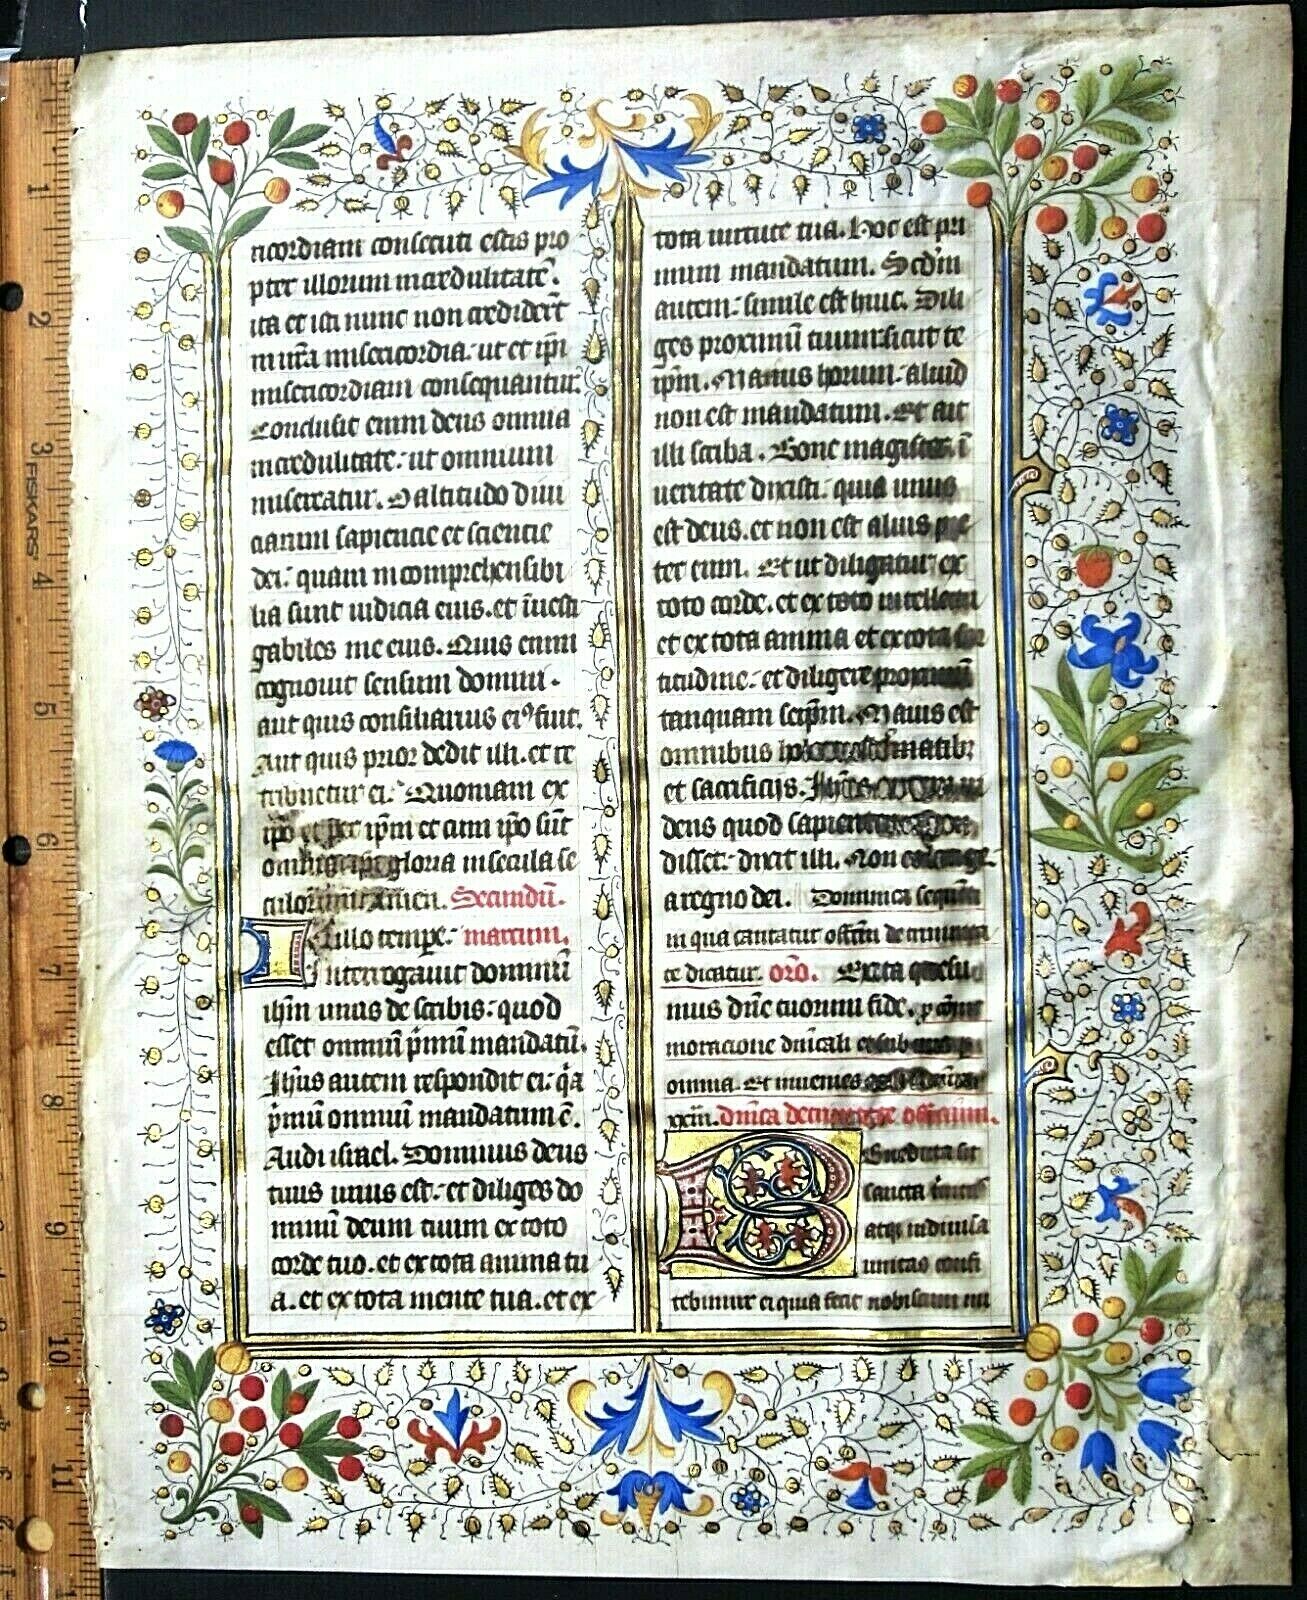 ricordiam consecuti estis pro
pter illorum incredulitatē.
ita et isti nunc non crediderūt
in vr̄a misericordia. ut et ip̄i
misericordiam consequantur.
Conclusit enim deus omnia
incredulitate. ut omnium
misereatur. O altitudo diui
ciarum sapiencie et sciencie
dei. quam incomprehensibi
lia sunt iudicia eius. et īuesti
gabiles uie eius. Quis enim
cognouit sensum domini.
aut quis consiliarius eiꝰ fuit.
Aut quis prior dedit illi. et re
tribuetur ei. Quoniam ex
ip̄o et per ip̄m et cum ip̄o sūt
omnia ip̄i gloria in secula se
culorum amen. Secundū.
In illo tempe. marcum.
Interrogauit dominū
ih̄m unus de scribis. quod
esset omniū p̄mū mandatū.
Ih̄us autem respondit ei. q̄a
p̄mū omniū mandatum ē.
Audi israel. Dominus deus
tuus unus est. et diliges do
minū deum tuum ex toto
corde tuo. et ex tota anima tu
a. et ex tota mente tua. et ex
tota uirtute tua. Hoc est pri
mum mandatum. Scd̄m
autem. simile est huic. Dili
ges proximū tuum. sicut te
ip̄m. Maius horum. aliud
non est mandatum. Et ait
illi scriba. Bone magister ī
ueritate dixisti. quia unus
est deus. et non est alius pre
ter eum. Et ut diligatur ex
toto corde. et ex toto intellectu
et ex tota anima et ex tota for
titudine. et diligere proximū
tanquam seip̄m. Maius est
omnibus
et sacrificijs. Ih̄us
deus quod sapienter
disset. dixit illi. Non es longe
a regno dei. Dominica sequenti
in qua cantatur offm̄ de trinita
te dicatur. orō. Excita quesu
mus dn̄e tuorum fide.
moracione dn̄icali
omnia. Et inuenies
xxiii. Dn̄ica de officium.
Benedicta sit
sancta
atqꝫ indiuisa
unitas confi
tebimur ei quia fecit nobiscum mi